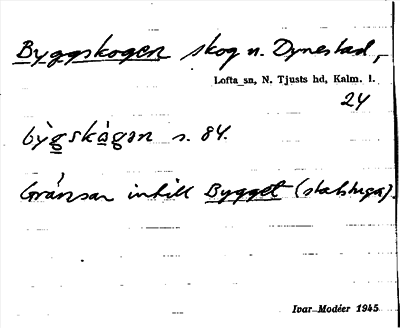 Byggskogen skog n. Dynestad,
Lofta sn, N. Tjusts hd, Kalm. l.
24
by̆gskågen s. 84.
Gränsar intill Bygget (statstuga).
Ivar Modéer 1945